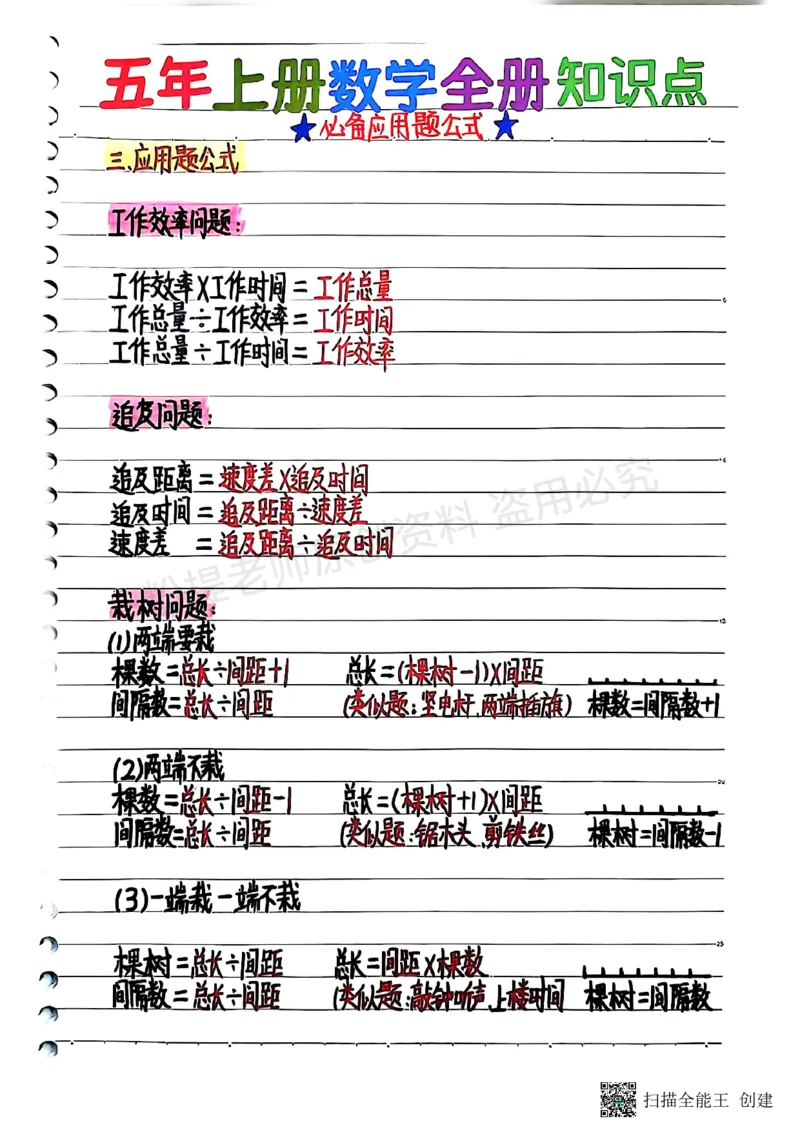 五年上册数学全册知识点
★必备应用题公式★
三、应用题公式
工作效率问题：
工作效率×工作时间＝工作总量
工作总量÷工作效率＝工作时间
工作总量÷工作时间＝工作效率
追及问题：
追及距离＝速度差×追及时间
追及时间＝追及距离÷速度差
速度差＝追及距离÷追及时间
栽树问题：
(1)两端要栽
棵数＝总长÷间距+1 总长＝(棵树-1)×间距
间隔数＝总长÷间距 (类似题：竖电杆、两端插旗) 棵数＝间隔数+1
(2)两端不栽
棵数＝总长÷间距-1 总长＝(棵树+1)×间距
间隔数＝总长÷间距 (类似题：锯木头、剪铁丝) 棵树＝间隔数-1
(3)一端栽一端不栽
棵树＝总长÷间距 总长＝间距×棵数
间隔数＝总长÷间距 (类似题：敲钟听声、上楼时间 棵树＝间隔数
提老师原创资料 盗用必究
扫描全能王 创建